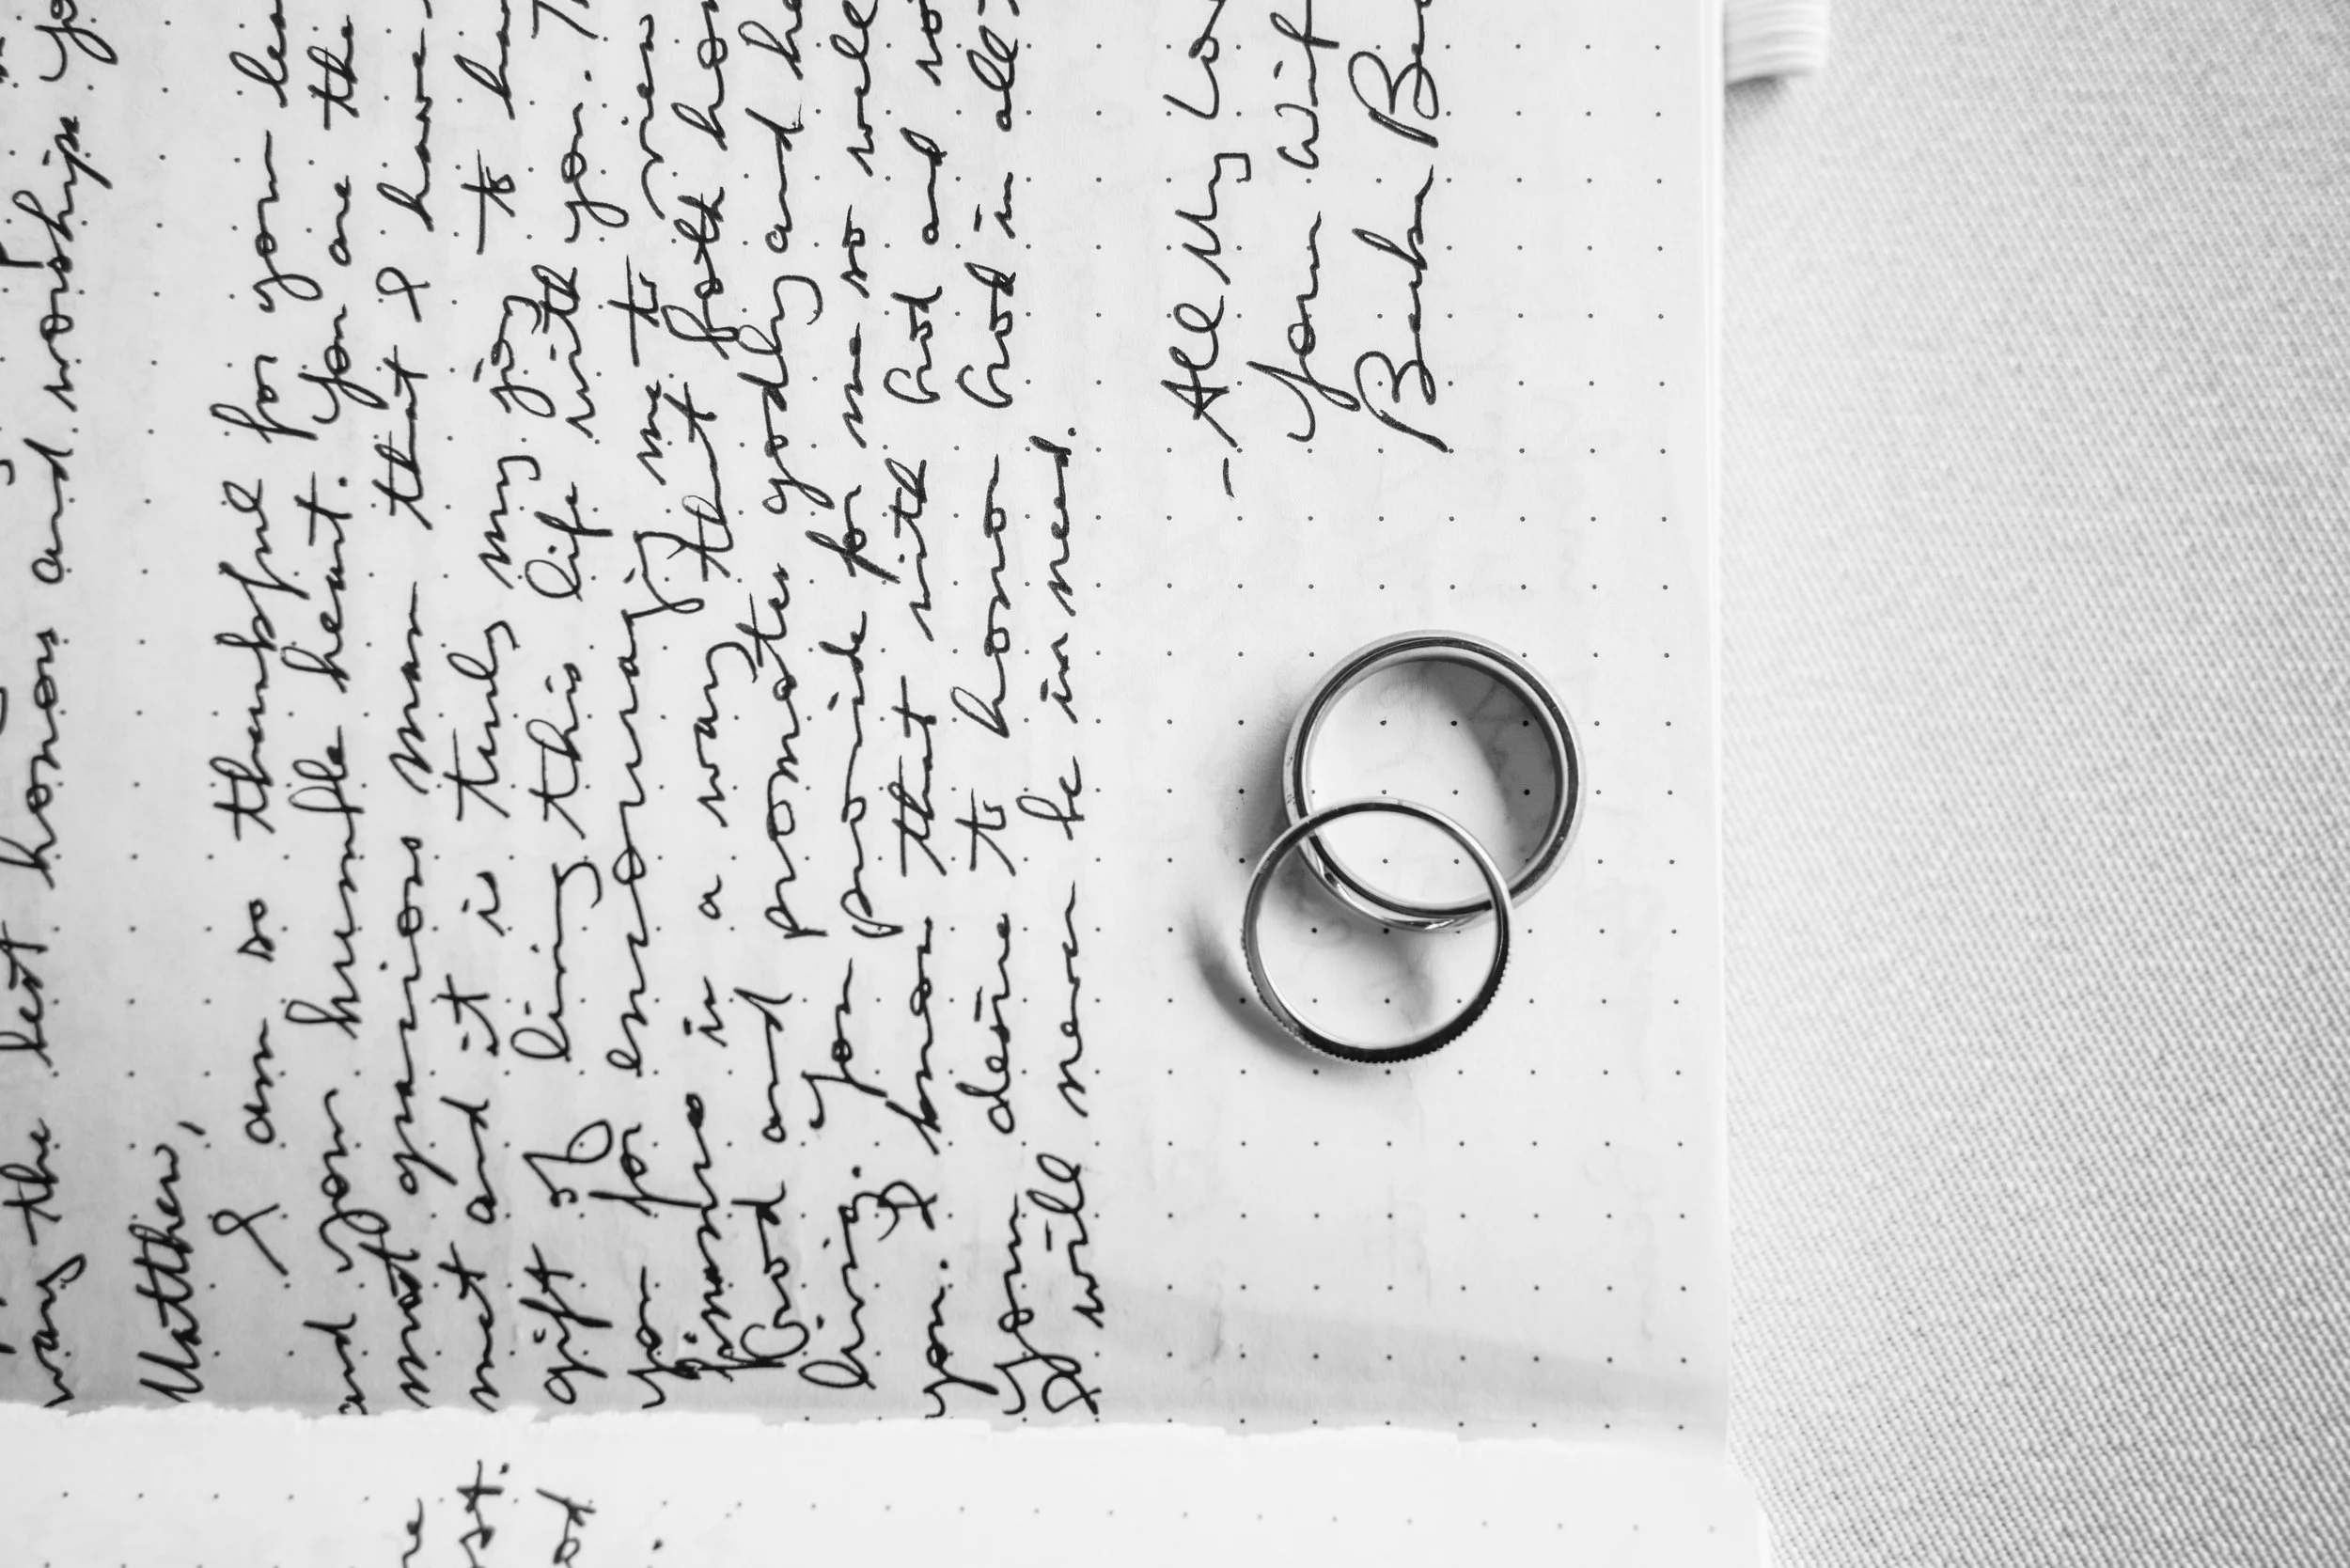 way the best honors and worship yo
Matthew,
I am so thankful for your lea
and your humble heart. You are the
most gracious man that I have
met and it is truly my joy to ha
gift of living this life with you. T
you for encouraging me to view
finances in a way that both hon
God and promotes godly and he
living. You provide for me so well
you. I know that with God and
your desire to honor God in all,
I will never be in need.
- All My Lo
Your Wif